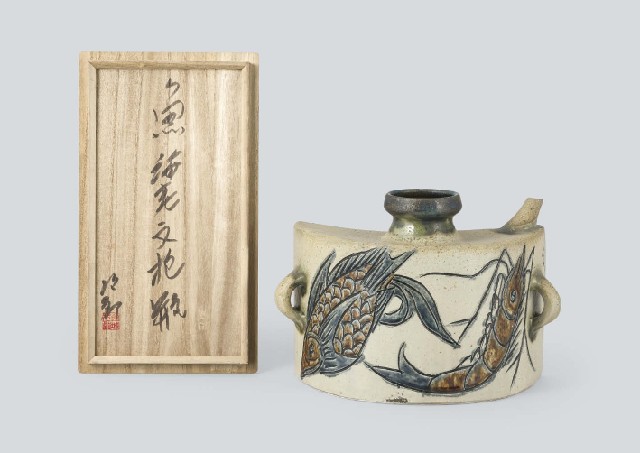 魚海老文抱瓶
次郎